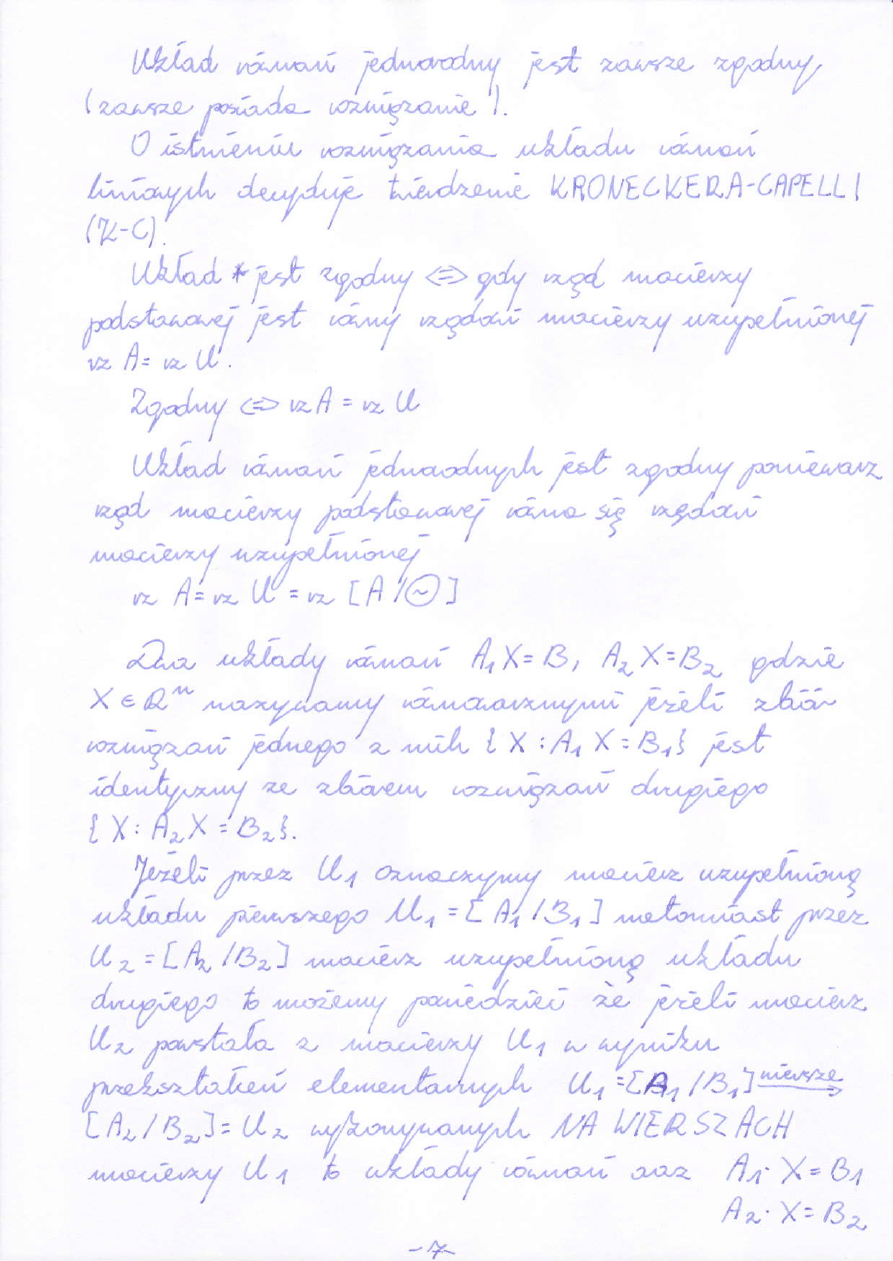 Układ równań jednorodny jest zawsze zgodny
(zawsze posiada rozwiązanie).
O istnieniu rozwiązania układu równań
liniowych decyduje twierdzenie KRONECKERA-CAPELLI
(K-C).
Układ * jest zgodny <=> gdy rząd macierzy
podstawowej jest równy rzędowi macierzy uzupełnionej
rz A = rz U.
Zgodny <=> rz A = rz U
Układ równań jednorodnych jest zgodny poniewarz
rząd macierzy podstawowej równa się rzędowi
macierzy uzupełnionej
rz A = rz U = rz [A/Θ]
Dwa układy równań A₁X=B, A₂X=B₂ gdzie
X ∈ Rⁿ nazywamy równoważnymi jeżeli zbiór
rozwiązań jednego z nich {X : A₁X = B₁} jest
identyczny ze zbiorem rozwiązań drugiego
{X : A₂X = B₂}.
Jeżeli przez U₁ oznaczymy macierz uzupełnioną
układu pierwszego U₁ = [A₁/B₁] natomiast przez
U₂ = [A₂/B₂] macierz uzupełnioną układu
drugiego to możemy powiedzieć że jeżeli macierz
U₂ powstała z macierzy U₁ w wyniku
przekształceń elementarnych U₁ = [A₁/B₁] wiersze →
[A₂/B₂] = U₂ wykonywanych NA WIERSZACH
macierzy U₁ to układy równań oraz A₁· X = B₁
A₂· X = B₂
-7-